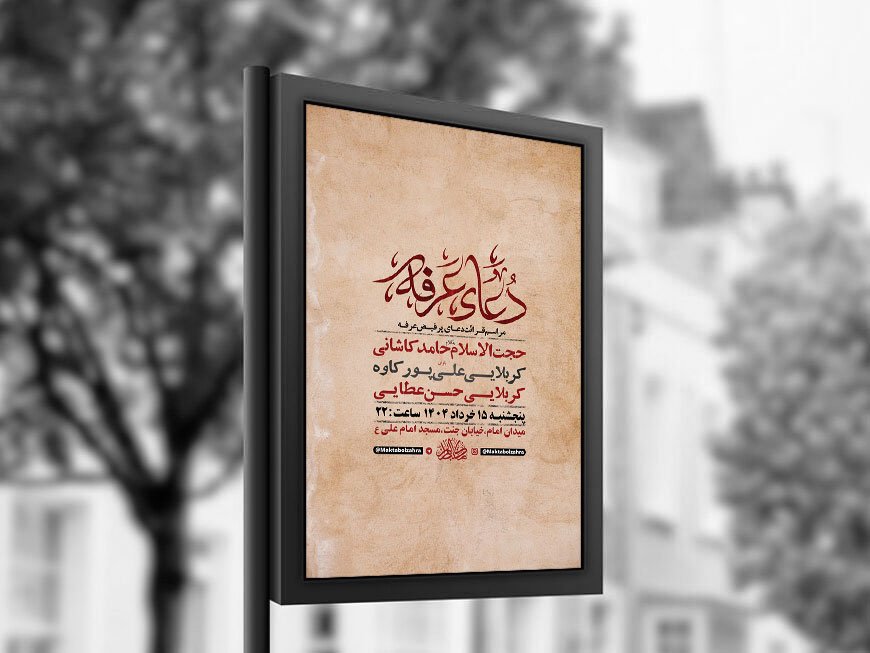 دُعای عَرَفه
مراسم قرائت دعای پرفیض عرفه
حجت الاسلام حامد کاشانی
کربلایی علی پورکاوه
کربلایی حسن عطایی
پنجشنبه ۱۵ خرداد ۱۴۰۴ ساعت: ۲۲
میدان امام، خیابان جنت، مسجد امام علی ع
@Maktabolzahra @Maktabolzahra